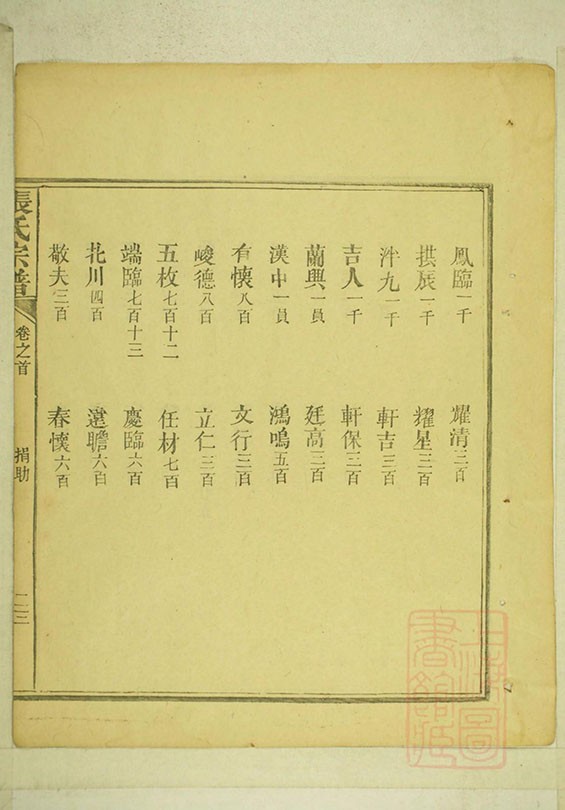 鳳臨一千
拱辰一千
泮九一千
吉人一千
蘭興一員
漢中一員
有懷八百
峻德八百
五枚七百十二
端臨七百十三
北川四百
敬夫三百
耀清三百
耀星三百
軒吉三百
軒保三百
廷高三百
鴻鳴五百
文行三百
立仁三百
任材七百
慶臨六百
遠瞻六百
春懷六百
張氏宗譜
卷之首
捐助
二三
上海圖書館藏